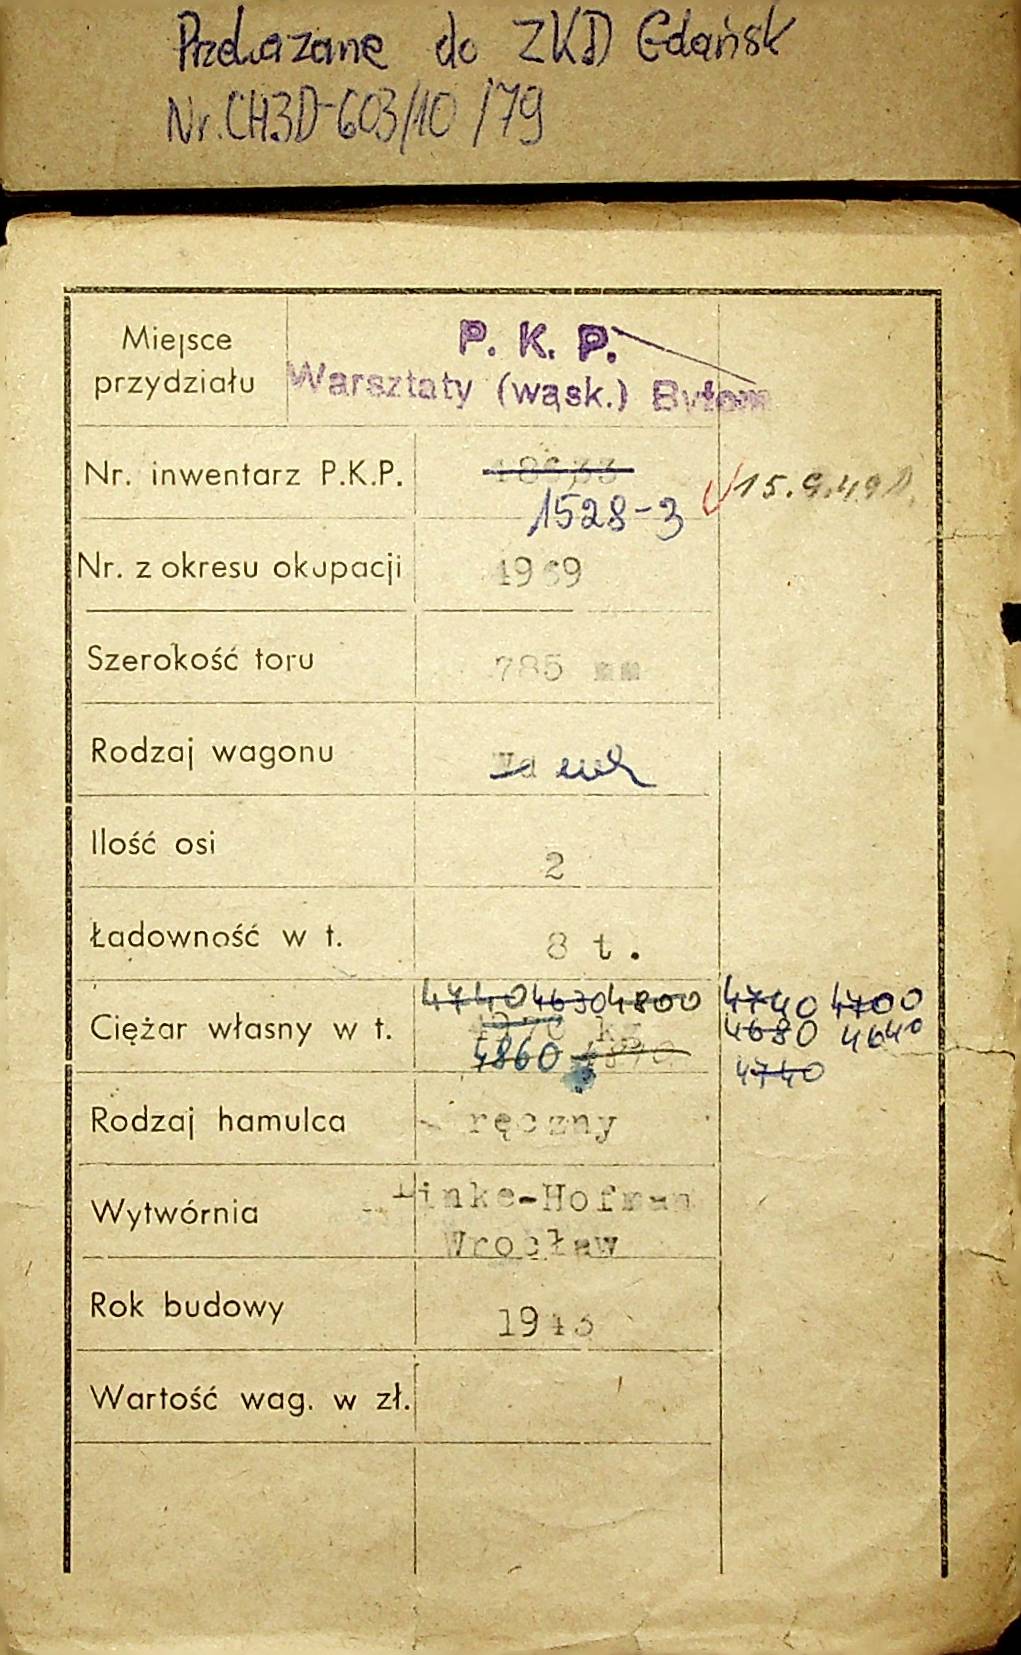 Przekazane do ZKD Gdańsk
Nr. CH3D-603/10/79
Miejsce przydziału
P. K. P.
Warsztaty (wąsk.) Bytom
Nr. inwentarz P.K.P.
1528-3
15.9.49
Nr. z okresu okupacji 1969
Szerokość toru 785 mm
Rodzaj wagonu
Ilość osi 2
Ładowność w t. 8 t.
4740 4630 4800 4740 4700
Ciężar własny w t. kg 4680 4640
4860 4740
Rodzaj hamulca ręczny
Wytwórnia Linke-Hofman
Wrocław
Rok budowy 1943
Wartość wag. w zł.